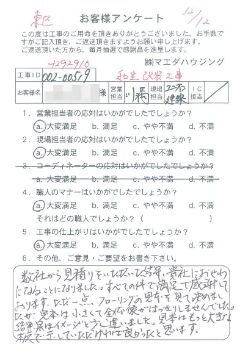 東区
お客様アンケート
12/12
この度は工事のご用命を頂きありがとうございました。お手数で
すがご記入頂き、ご返送頂きますようお願い申し上げます。
ご返送頂いた方から、毎月抽選で感謝品を進呈します。
㈱マエダハウジング
工事ID 002-00519
お客様名 様 営業担当 工事担当
1. 営業担当者の応対はいかがでしたでしょうか?
a. 大変満足 b. 満足 c. やや不満 d. 不満
2. 工事担当者の応対はいかがでしたでしょうか?
a. 大変満足 b. 満足 c. やや不満 d. 不満
3. コーディネーターの応対はいかがでしたでしょうか?
a. 大変満足 b. 満足 c. やや不満 d. 不満
4. 職人のマナーはいかがでしたでしょうか?
a. 大変満足 b. 満足 c. やや不満 d. 不満
それはどの職人でしょうか?( )
5. 工事の仕上がりはいかがでしたでしょうか?
a. 大変満足 b. 満足 c. やや不満 d. 不満
6. その他、ご意見・ご要望をお書き下さい。
数社から見積りをいただいた結果、貴社におねがい
になることになりました。すべての件で満足で感謝して
おります。ただ一点、フローリングの見本を見て決めまし
たが、見本は小さくて全体像がはっきりしませんでした。
結果実はイメージとちがっていました。見本はもっと大きな
板で示していただければ良かったと思います。